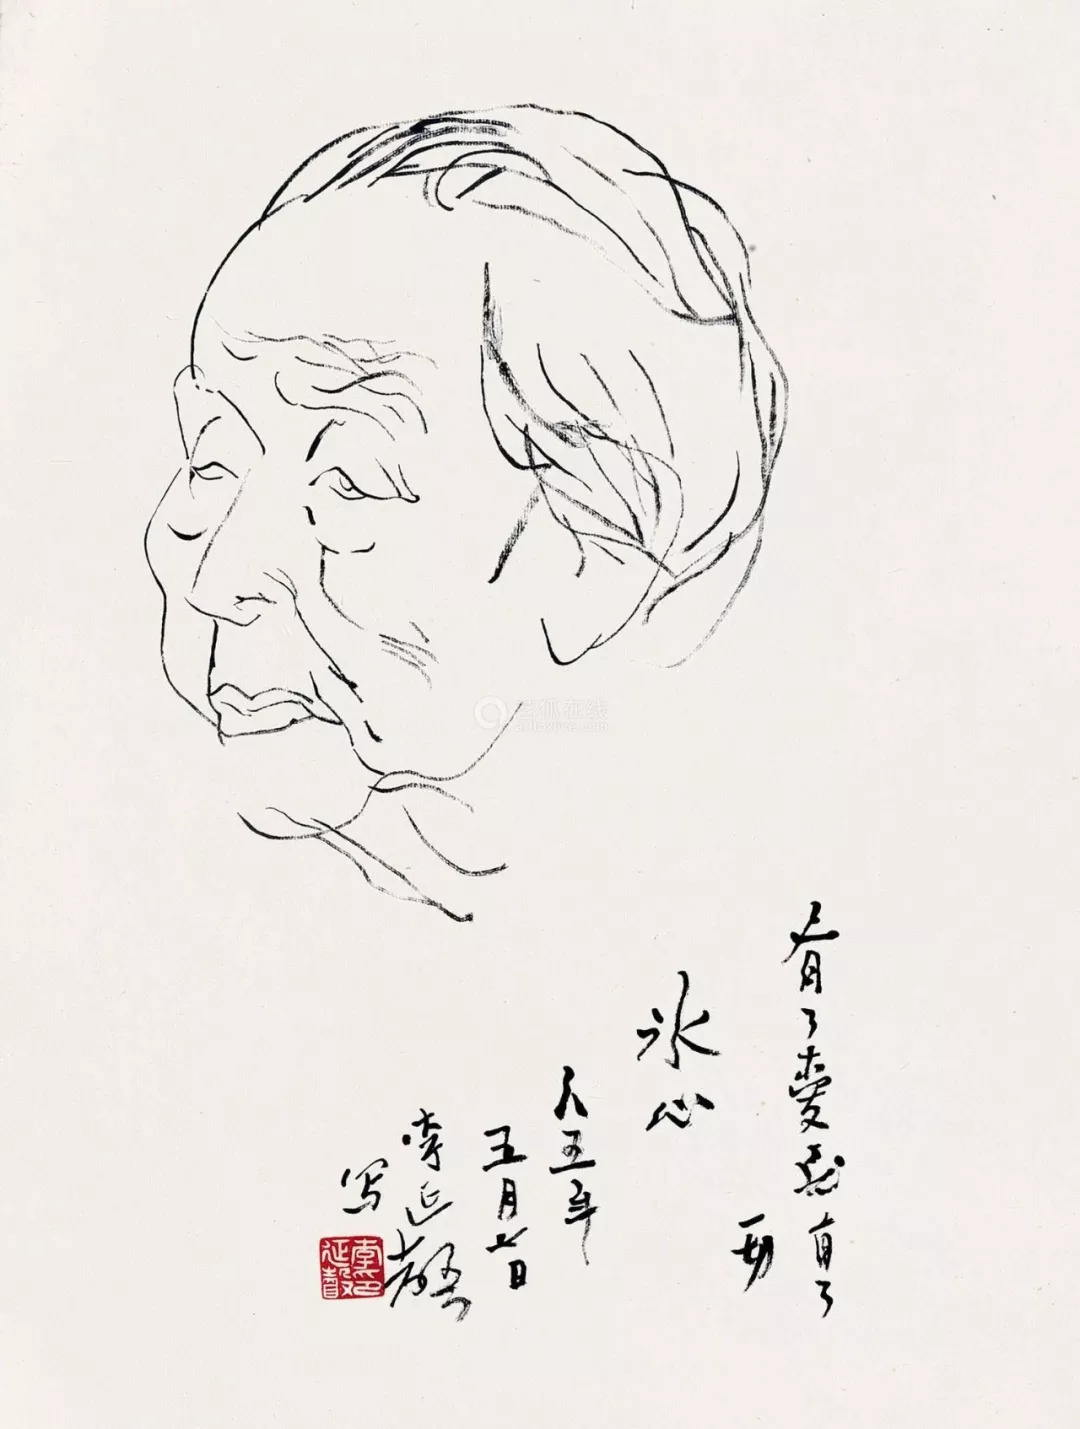 有了爱就有了
一切
冰心
八五年
五月七日
李延声
写
李延声印